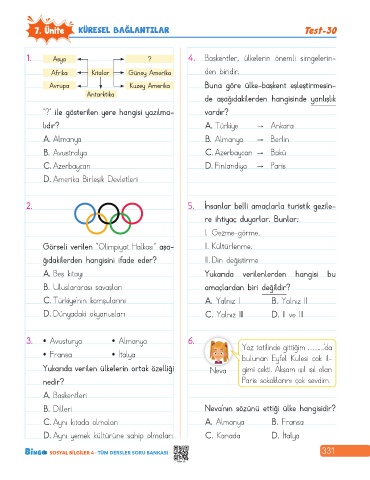 7. Ünite KÜRESEL BAĞLANTILAR
Test-30
1.
Asya ?
Afrika Kıtalar Güney Amerika
Avrupa Kuzey Amerika
Antarktika
"?" ile gösterilen yere hangisi yazılma-
lıdır?
A. Almanya
B. Avustralya
C. Azerbaycan
D. Amerika Birleşik Devletleri
2.
Görseli verilen "Olimpiyat Halkası" aşa-
ğıdakilerden hangisini ifade eder?
A. Beş kıtayı
B. Uluslararası savaşları
C. Türkiye'nin komşularını
D. Dünyadaki okyanusları
3. • Avusturya • Almanya
• Fransa • İtalya
Yukarıda verilen ülkelerin ortak özelliği
nedir?
A. Başkentleri
B. Dilleri
C. Aynı kıtada olmaları
D. Aynı yemek kültürüne sahip olmaları
4. Başkentler, ülkelerin önemli simgelerin-
den biridir.
Buna göre ülke-başkent eşleştirmesin-
de aşağıdakilerden hangisinde yanlışlık
vardır?
A. Türkiye → Ankara
B. Almanya → Berlin
C. Azerbaycan → Bakü
D. Finlandiya → Paris
5. İnsanlar belli amaçlarla turistik gezile-
re ihtiyaç duyarlar. Bunlar;
I. Gezme-görme,
II. Kültürlenme,
III. Din değiştirme
Yukarıda verilenlerden hangisi bu
amaçlardan biri değildir?
A. Yalnız I B. Yalnız II
C. Yalnız III D. II ve III
6.
Yaz tatilinde gittiğim ........'da
bulunan Eyfel Kulesi çok il-
gimi çekti. Akşam ışıl ışıl olan
Paris sokaklarını çok sevdim.
Neva
Neva'nın sözünü ettiği ülke hangisidir?
A. Almanya B. Fransa
C. Kanada D. İtalya
BİNGO SOSYAL BİLGİLER 4 - TÜM DERSLER SORU BANKASI
331